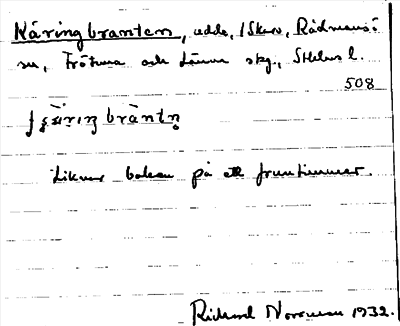 Käringbranten, udde, i Skär, Rådmansö
sn, Frötuna och Länna skg., Sthlms l.
508
Liknar baken på ett fruntimmer.
Rickard Norrman 1932.